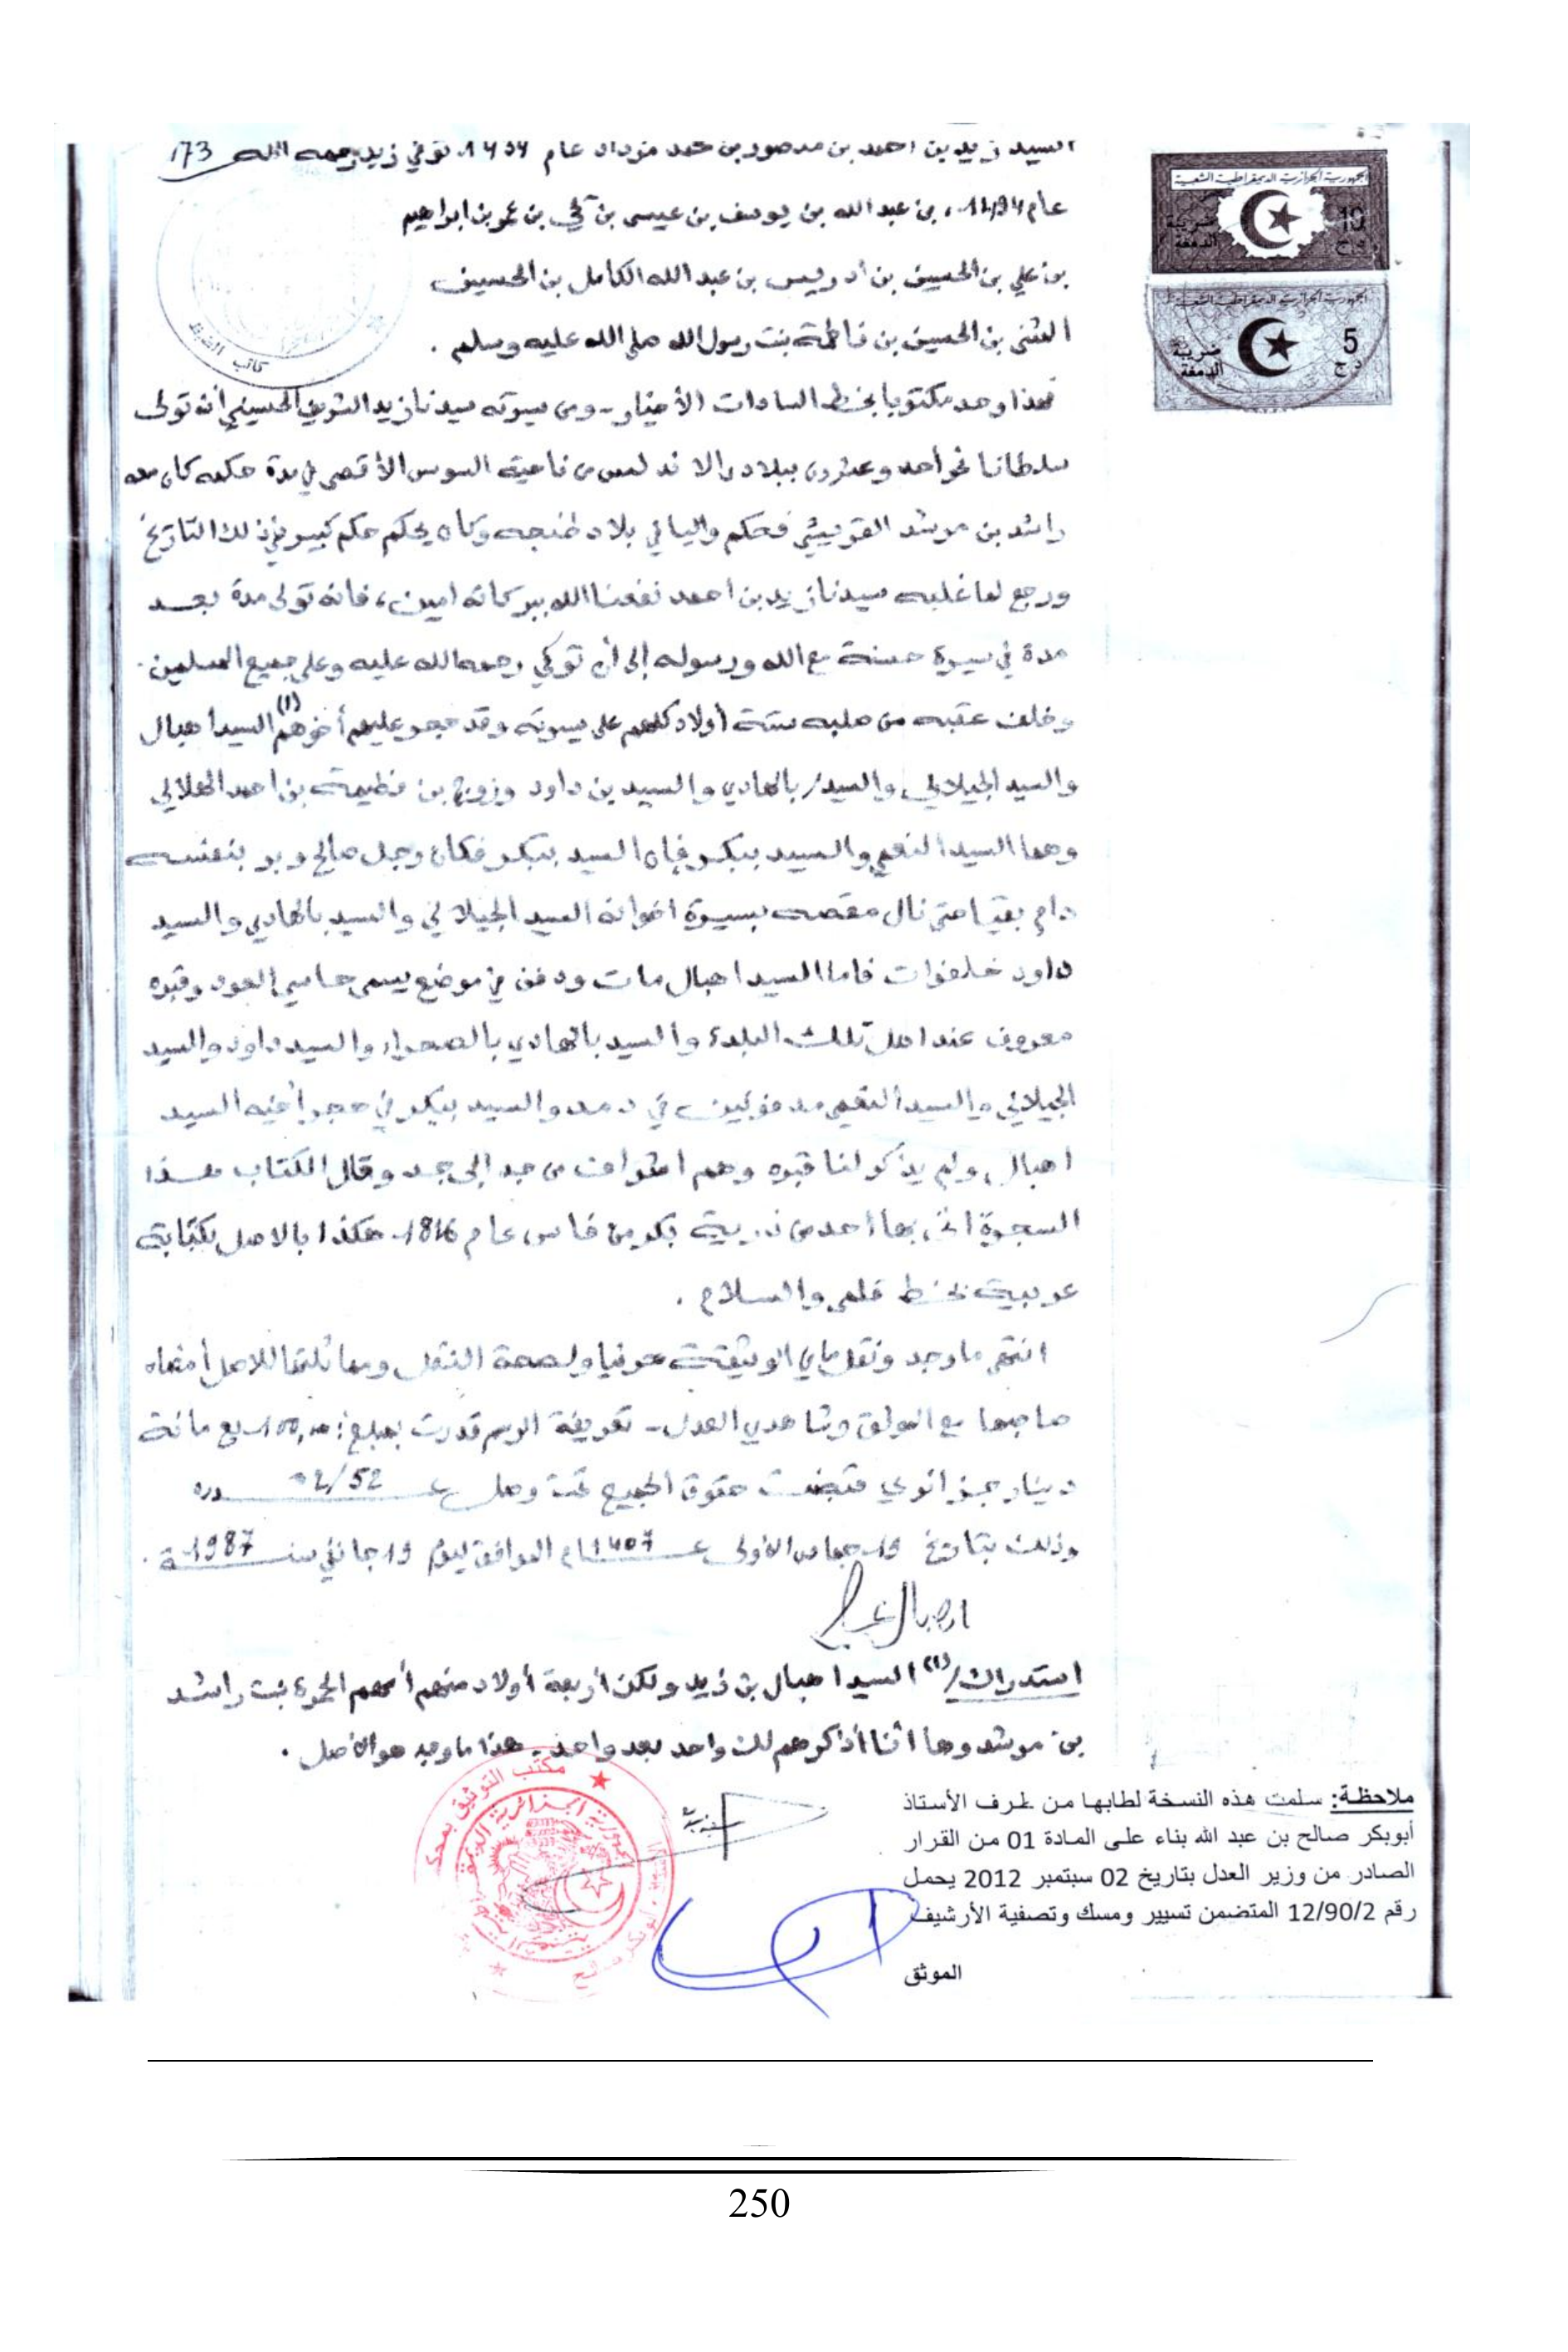 السيد زيد بن احمد بن منصور بن محمد مزداد عام 1404. توفي زيد رحمه الله 173
عام 1194، بن عبد الله بن يوسف بن عيسى بن بن عمر بن ابراهيم
بن علي بن الحسين بن أدريس بن عبد الله الكامل بن الحسين
المثنى بن الحسين بن فاطمة بنت رسول الله صلى الله عليه وسلم .
فهذا وجد مكتوبا بخط السادات الأخيار - ومن سيرته سيدنا زيد الشريف الحسيني أنه تولى
سلطانا نحو أحد وعشرون ببلاد الاندلس من ناحية السوس الأقصى في مدة حكمه كان معه
راشد بن مرشد القريشي فحكم واليا في بلاد طنجه وكان يحكم حكم كبير في ذلك التاريخ
ورجع لما غلبه سيدنا زيد بن احمد نفعنا الله ببركاته امين، فانه تولى مدة بعد
مدة في سيرة حسنة مع الله ورسوله إلى أن توفي رحمه الله عليه وعلى جميع المسلمين.
وخلف عقبه من صلبه ستة أولاد كلهم على سيرته وقد حجر عليهم أخوهم (1) السيد اهبال
والسيد الجيلالي والسيد/ بالهادي والسيد بن داود وزوج بن فطيمة بن احمد الهلالي
وهما السيد النعيم والسيد ببكر فإن السيد ببكر فكان رجل صالح وبر بنفسه
دام بقيا حتى نال مقصه بسيرة اخوانه السيد الجيلالي والسيد بالهادي والسيد
داود خلفوات فاما السيد اهبال مات ودفن في موضع يسمى حاسي العود وقبره
معروف عند اهل تلك البلدة والسيد بالهادي بالصحراء والسيد داود والسيد
الجيلالي والسيد النعيم مدفونين في دمد والسيد ببكر في حجر أخيه السيد
اهبال ولم يذكر لنا قبره وهم اشراف من جد إلى جد وقال الكتاب هذا
السجرة اتى بها احد من ذرية بكر من فاس عام 1816. هكذا بالاصل بكتابة
عربية بخط قلمي والسلام .
انتهى ما وجد ونقل ماي الوثيقة حرفيا ولصحة النقل ومماثلتها للاصل أمضاه
صاحبها مع الموثق وشاهدي العدل - تعريفة الرسم قدرت بمبلغ: 100,00 بع مائة
دينار جزائري قبضت حقوق الجميع تحت وصل عـ 02/52 ـدده
وذلك بتاريخ 19 جمادى الأولى عـ 1407 ـام الموافق ليوم 19 جانفي سنـ 1987 ـة .
اهبال
استدراك/ (1) السيد اهبال بن زيد ولكن أربعة أولاد منهم أمهم الحرة بنت راشد
بن مرشد وها اثنا أذاكرهم لك واحد بعد واحد. هذا ما وجد هو الأصل .
الجمهورية الجزائرية الديمقراطية الشعبية
ضريبة الدمغة
10 دج
الجمهورية الجزائرية الديمقراطية الشعبية
ضريبة الدمغة
5 دج
كاتب الضبط
مكتب التوثيق بمحكمة
الجمهورية الجزائرية الديمقراطية الشعبية
ملاحظة: سلمت هذه النسخة لطابها من طرف الأستاذ
أبوبكر صالح بن عبد الله بناء على المادة 01 من القرار
الصادر من وزير العدل بتاريخ 02 سبتمبر 2012 يحمل
رقم 12/90/2 المتضمن تسيير ومسك وتصفية الأرشيف
الموثق
250